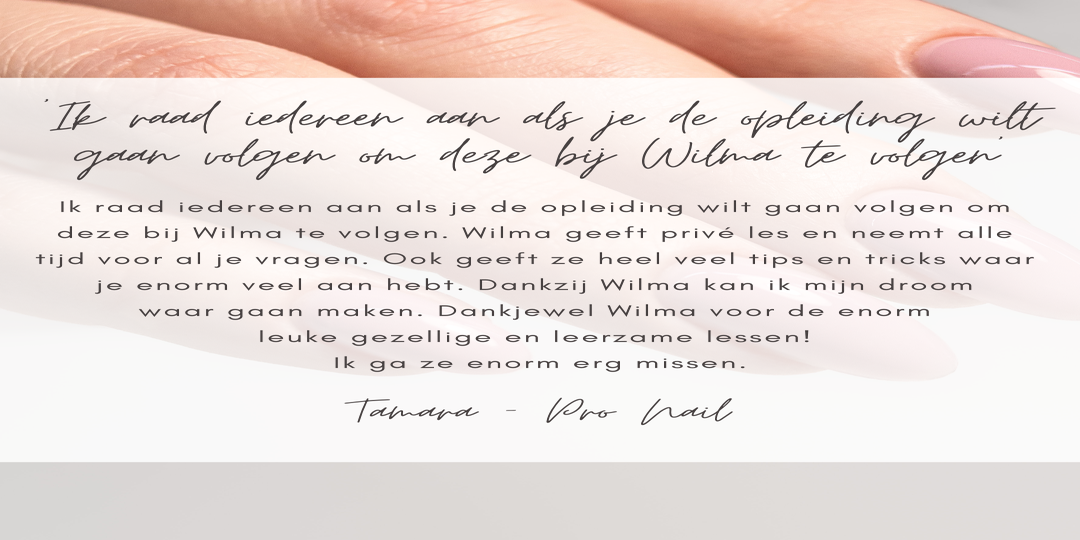 'Ik raad iedereen aan als je de opleiding wilt
gaan volgen om deze bij Wilma te volgen'
Ik raad iedereen aan als je de opleiding wilt gaan volgen om
deze bij Wilma te volgen. Wilma geeft privé les en neemt alle
tijd voor al je vragen. Ook geeft ze heel veel tips en tricks waar
je enorm veel aan hebt. Dankzij Wilma kan ik mijn droom
waar gaan maken. Dankjewel Wilma voor de enorm
leuke gezellige en leerzame lessen!
Ik ga ze enorm erg missen.
Tamara - Pro Nail